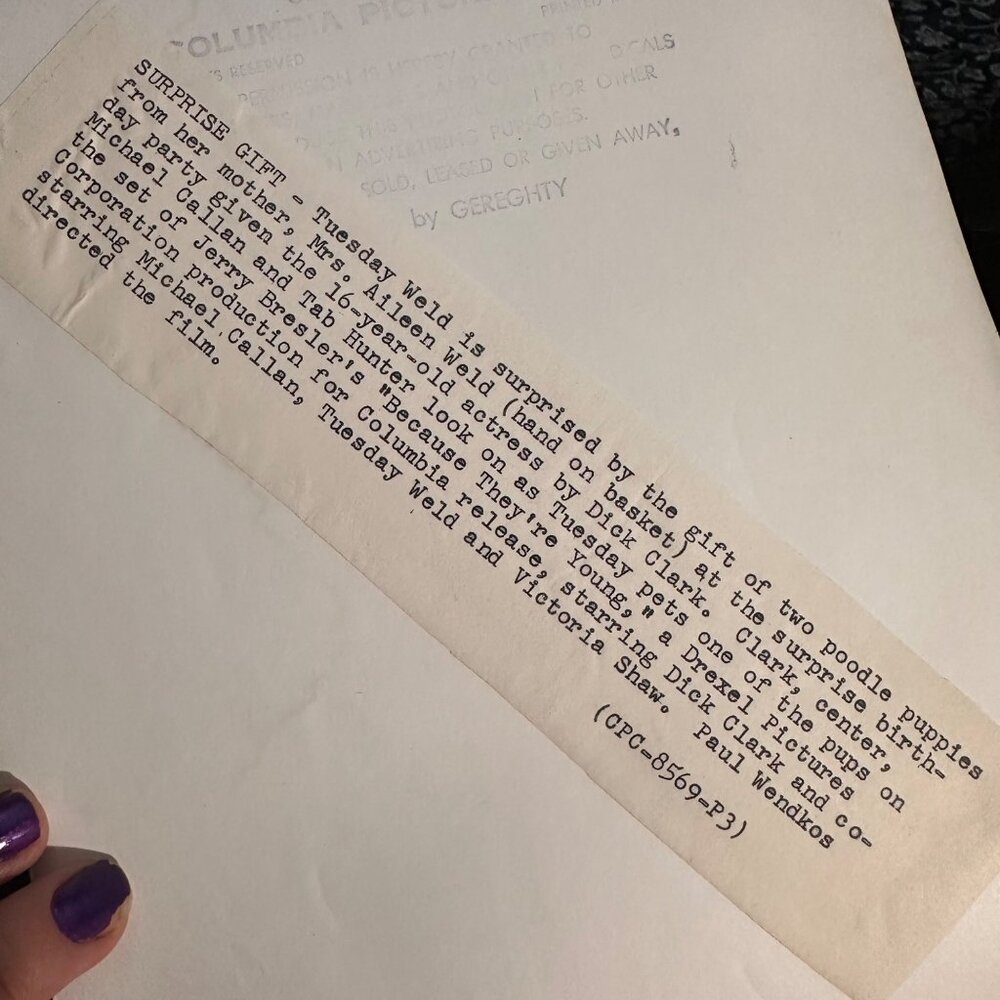 COLUMBIA
PRINTED
RESERVED
PERMISSION IS HEREBY GRANTED TO
FOR OTHER
ADVERTISING PURPOSES.
SOLD, LEASED OR GIVEN AWAY,
by GEREGHTY
SURPRISE GIFT - Tuesday Weld is surprised by the gift of two poodle puppies
from her mother, Mrs. Aileen Weld (hand on basket) at the surprise birth-
day party given the 16-year-old actress by Dick Clark. Clark, center,
Michael Callan and Tab Hunter look on as Tuesday pets one of the pups on
the set of Jerry Bresler's "Because They're Young," a Drexel Pictures
Corporation production for Columbia release, starring Dick Clark and co-
starring Michael Callan, Tuesday Weld and Victoria Shaw. Paul Wendkos
directed the film.
(CPC-8569-P3)